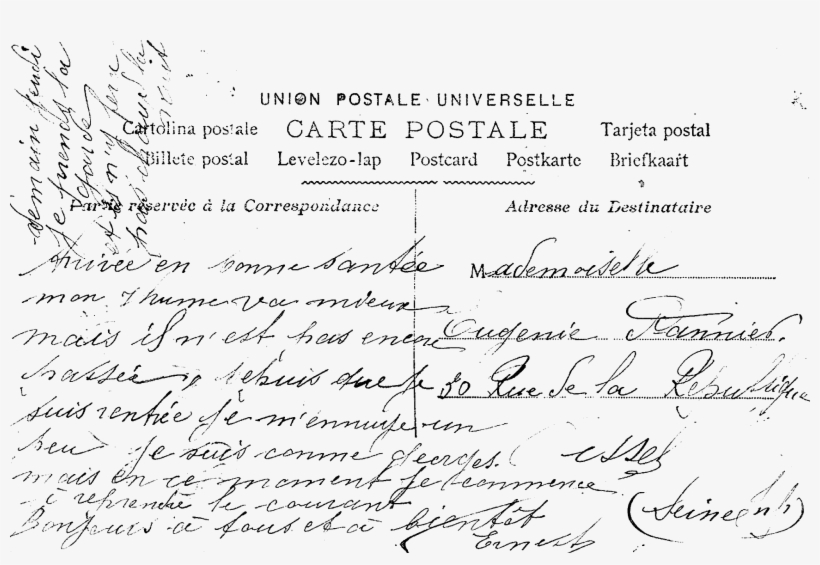 demain jeudi
je prends la
garde
et as n'y fere
pas chaud la
nuit
UNION POSTALE UNIVERSELLE
Cartolina postale CARTE POSTALE Tarjeta postal
Billete postal Levelezo-lap Postcard Postkarte Briefkaart
Partie réservée à la Correspondance
Adresse du Destinataire
Arrivée en bonne santée
mon rhume va mieux
mais il n'est pas encore
passée, depuis que je
suis rentrée je m'ennuye un
peu je suis comme georges.
mais en ce moment je commence
à reprendre le courant
Bonjours à tous et à bientôt
Ernest
Mademoiselle
Eugenie
30 Rue de la République
(Seine